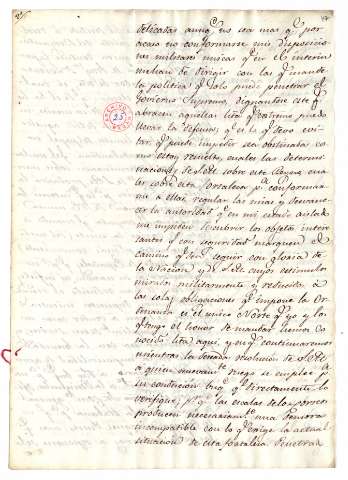 delicadas aunq.e no sea mas q.e por
acaso no conformarse mis disposicio
nes militares unicas q.e en el interin
median de dirigir con las q.e mande
la politica q.e solo puede penetrar el
Govierno Supremo, dignandose este q.e
abrazen aquellas hta q.e extremo puedo
llevar la defensa, q.e es lo q.e devo evi
tar q.e puede impedir sea obstinada co
mo estoy resuelto, cuales las determi
naciones de sobre esta
les sobre esta Fortaleza p.a conformar
me a ellas, regular las mias y desvane
cer la autoridad q.e en mi estado aislado
me impiden descubrir los objetos intere
santes q.e con seguridad marquen el
camino q.e devo seguir con gloria de
la Nacion y cuyos estimulos
mirados militarmente y reducidos a
las solas obligaciones q.e impone la Or
denanza es el unico Norte q.e yo y los
q.e tengo el honor de mandar hemos co
nocido hta aqui, y en q.e continuaremos
mientras la deseada resolucion de
a quien nuevam.te ruego se emplee p.r
su conducion q.e directamente lo
verifique; p.r q.e las escalas de los correos
producen necesariam.te una demora
incompatible con lo q.e exige la actual
situacion de esta fortaleza. Penetrad
25